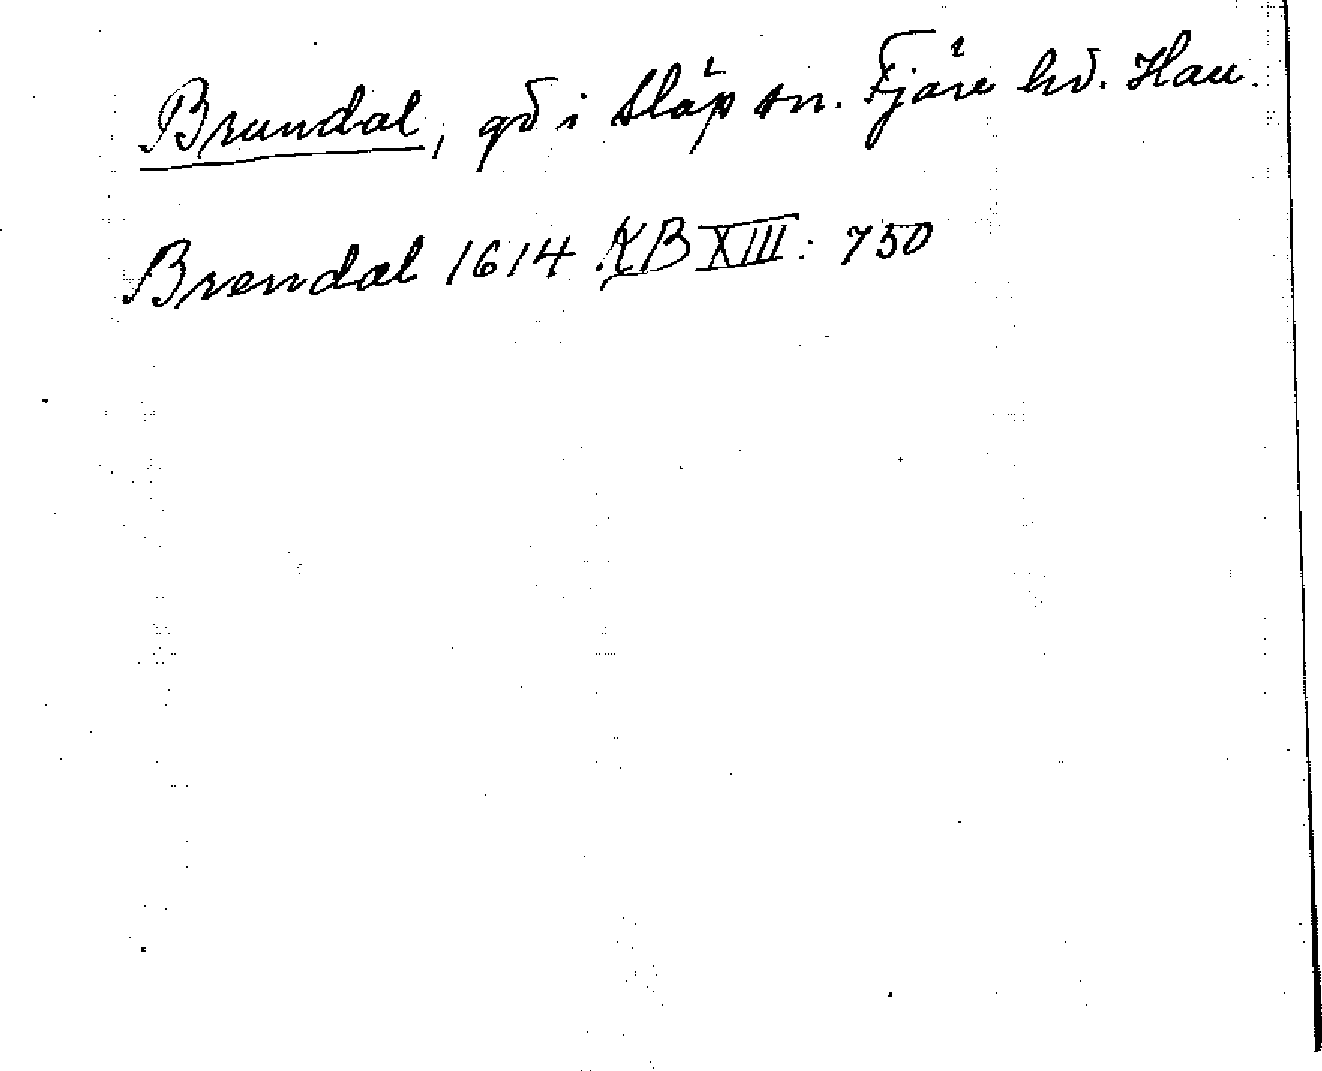 Brandal, gd i Släp sn. Fjäre hd. Hall.
Brendal 1614 KB XIII: 750